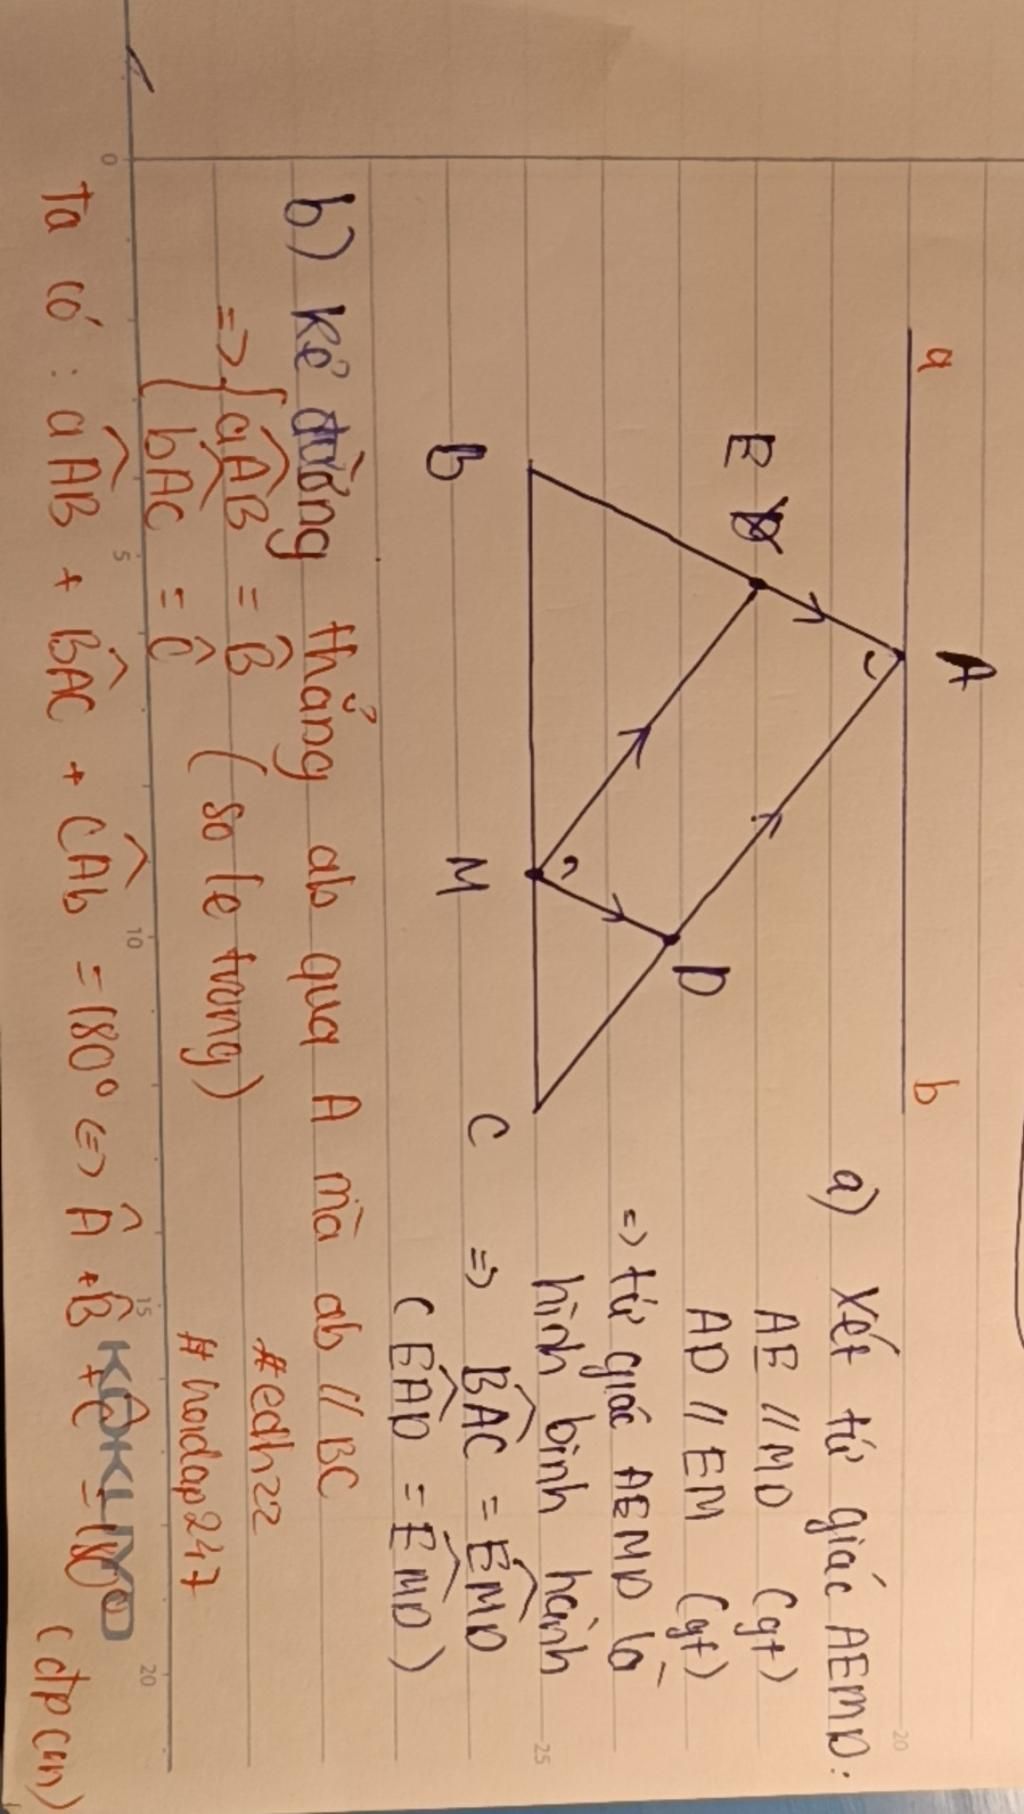 a
A
b
E
D
B
M
C
a) Xét tứ giác AEMD:
AE // MD (gt)
AD // EM (gt)
=> tứ giác AEMD là
hình bình hành
=> BAC = EMD
( EAD = EMD )
b) Kẻ đường thẳng ab qua A mà ab // BC
=> { aAB = B̂
{ bAC = Ĉ ( so le trong )
#edh22
#hoidap247
Ta có : aAB + BAC + CAb = 180° <=> Â + B̂ + Ĉ = 180° (đpcm)
KOKUYO
0 5 10 15 20
20
25